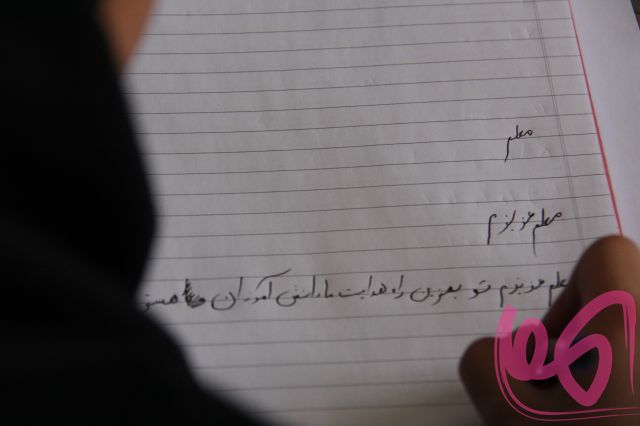 معلم
معلم عزیزم
معلم عزیزم تو بهترین راه هدایت ما دانش آموزان هستی